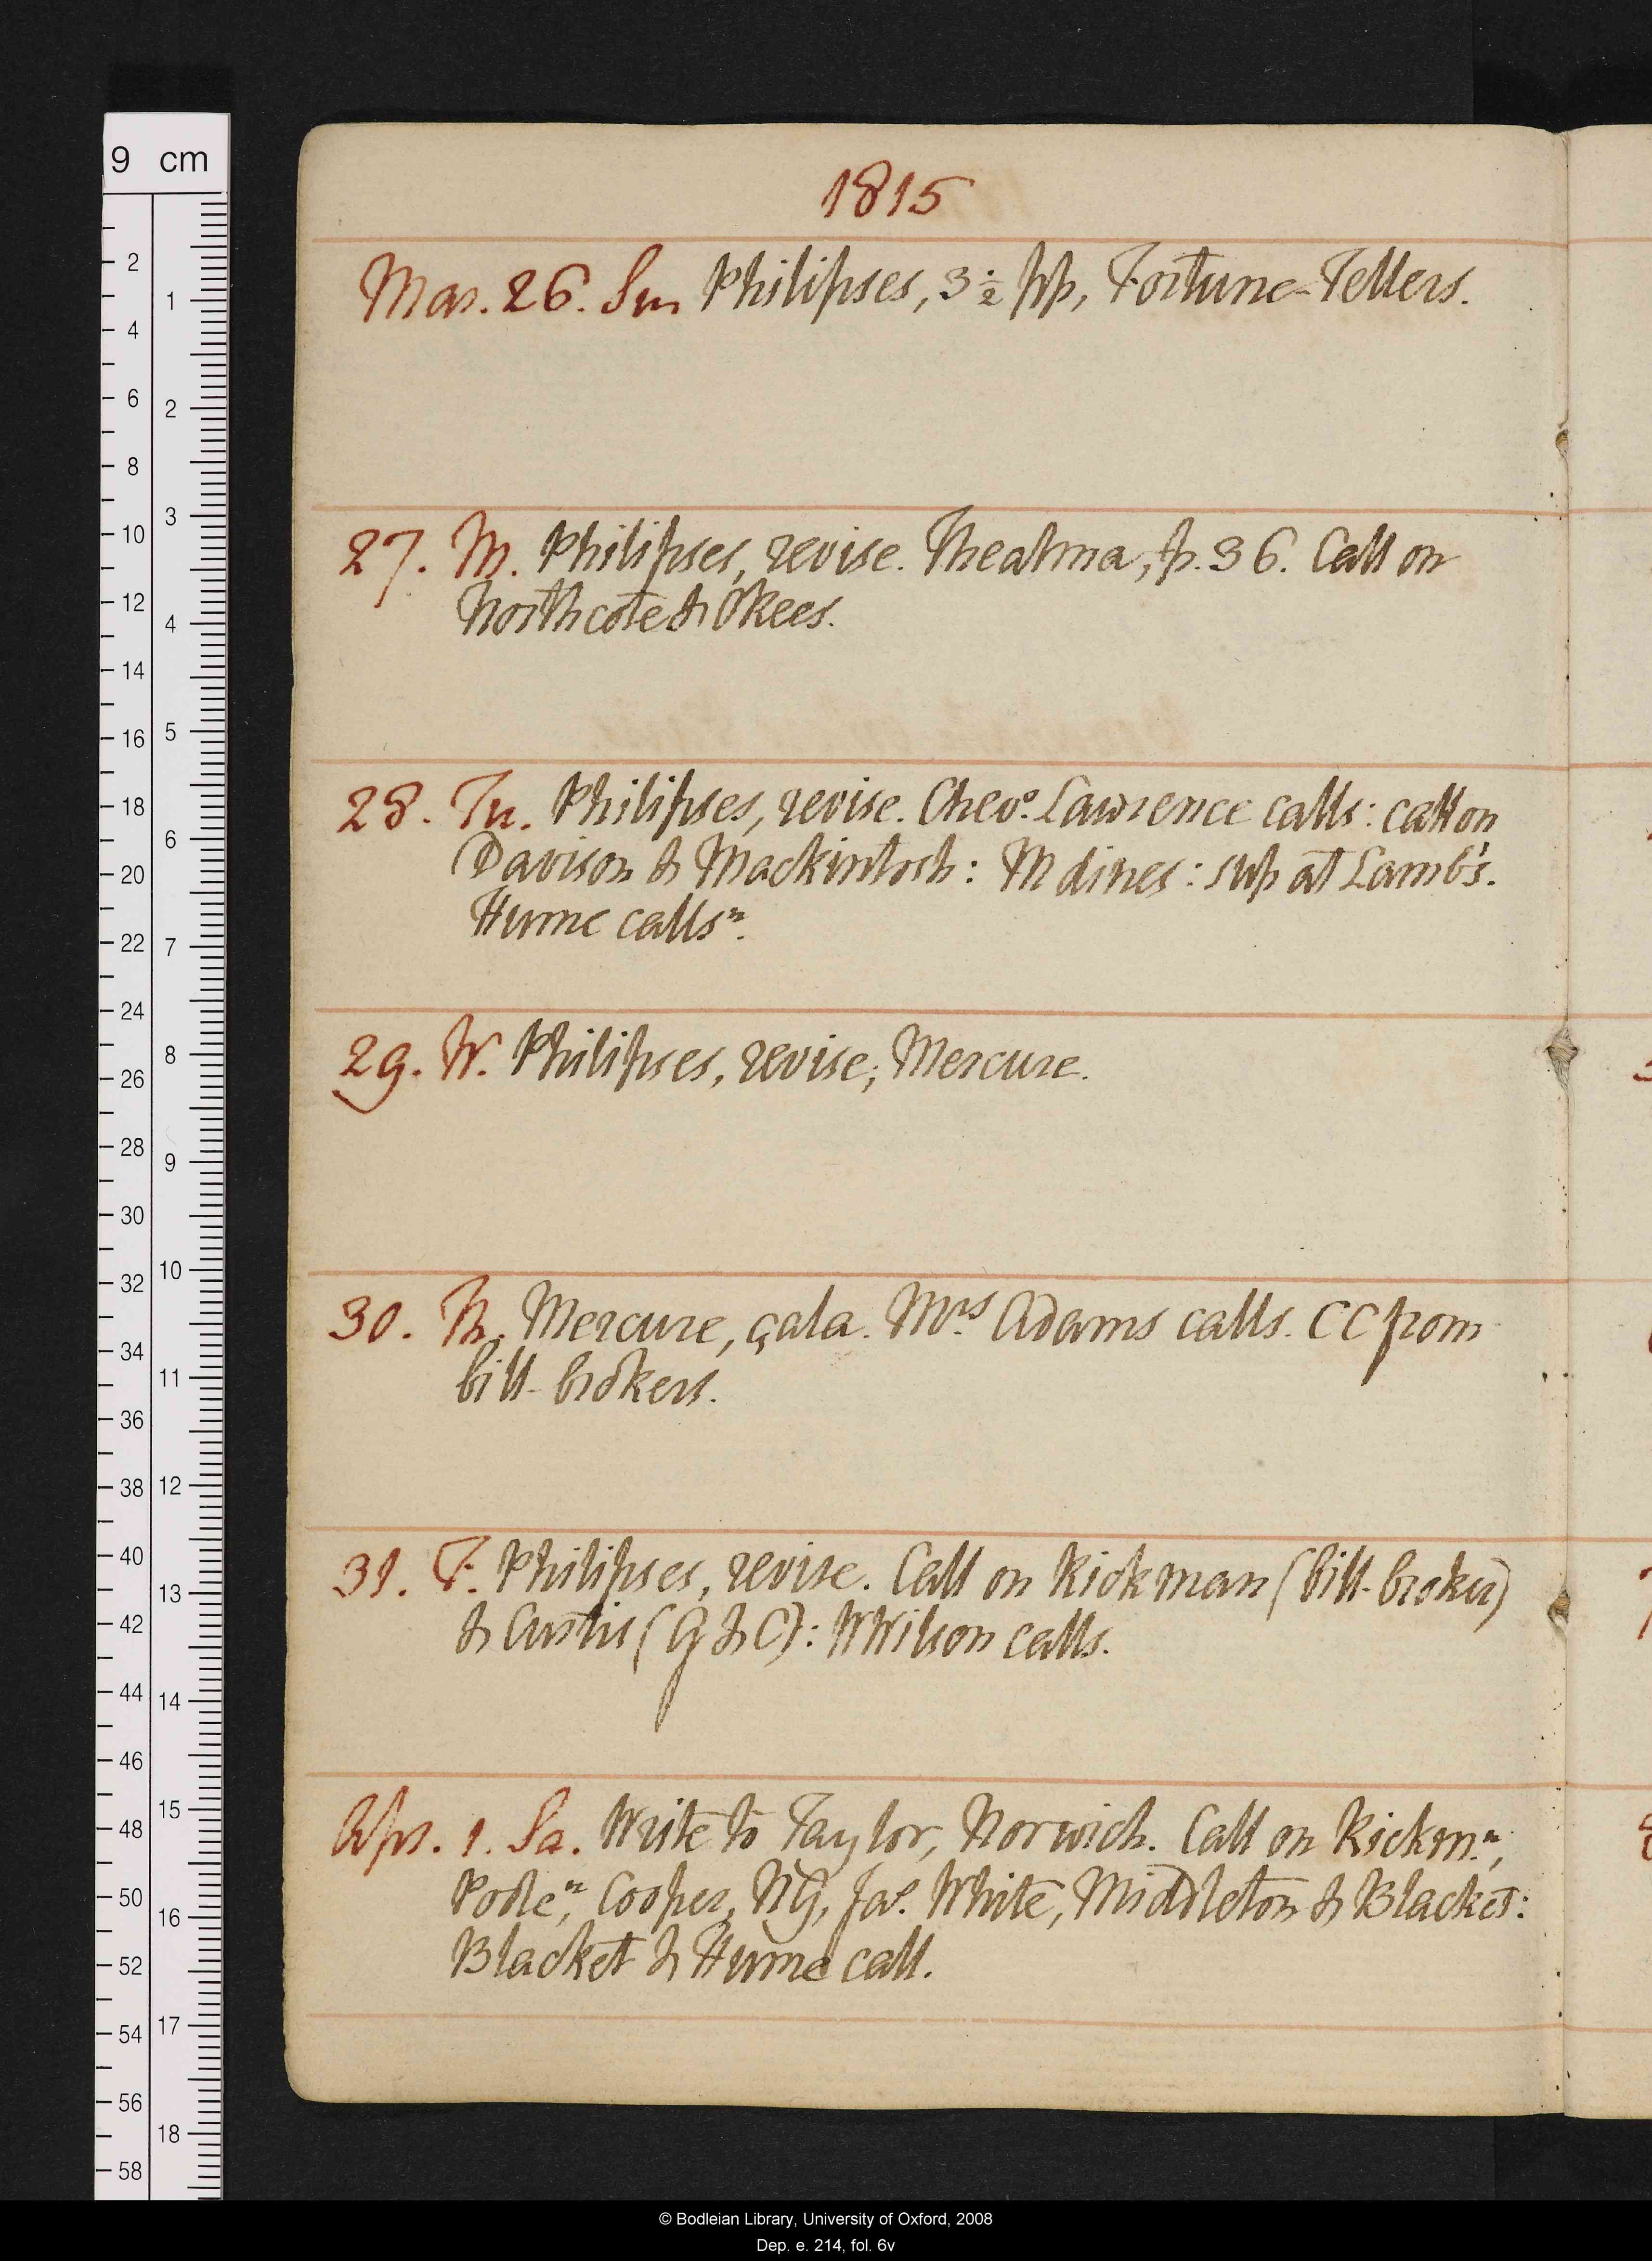 9 cm
1815
Mar. 26. Su Philipses, 3 ½ pp, Fortune-Tellers.
27. M. Philipses, revise. Thealma, p. 36. Call on
Northcote & Okees.
28. Tu. Philipses, revise. Chevr. Lawrence calls: call on
Davison & Mackintosh: M dines: sup at Lamb's.
Hume callsn.
29. W. Philipses, revise; Mercure.
30. Th. Mercure, çala. Mrs Adams calls. CC from
bill-brokers.
31. F. Philipses, revise. Call on Rickman (bill-broker)
& Curtis (G & C): W Wilson calls.
Apr. 1. Sa. Write to Taylor, Norwich. Call on Rickmn,
Poolen, Cooper, NG, Jas. White, Middleton & Blacket:
Blacket & Hume call.
© Bodleian Library, University of Oxford, 2008
Dep. e. 214, fol. 6v